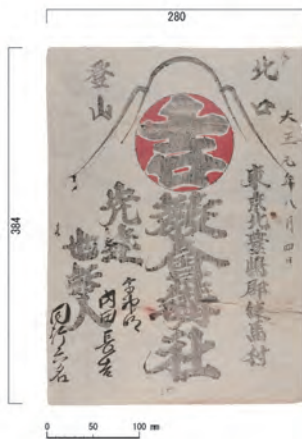 280
384
北口
登山
大正元年八月四日
東京北豊嶋郡練馬村
教會講社
先達
内田長吉
同行六名
0 50 100 mm